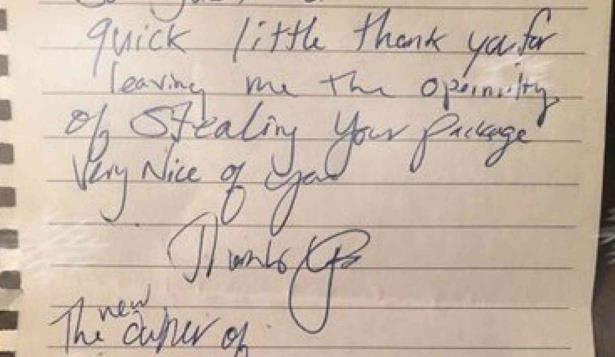 quick little thank you for
leaving me the oppinulty
of stealing your package
Very Nice of you
Thanks
The new owner of